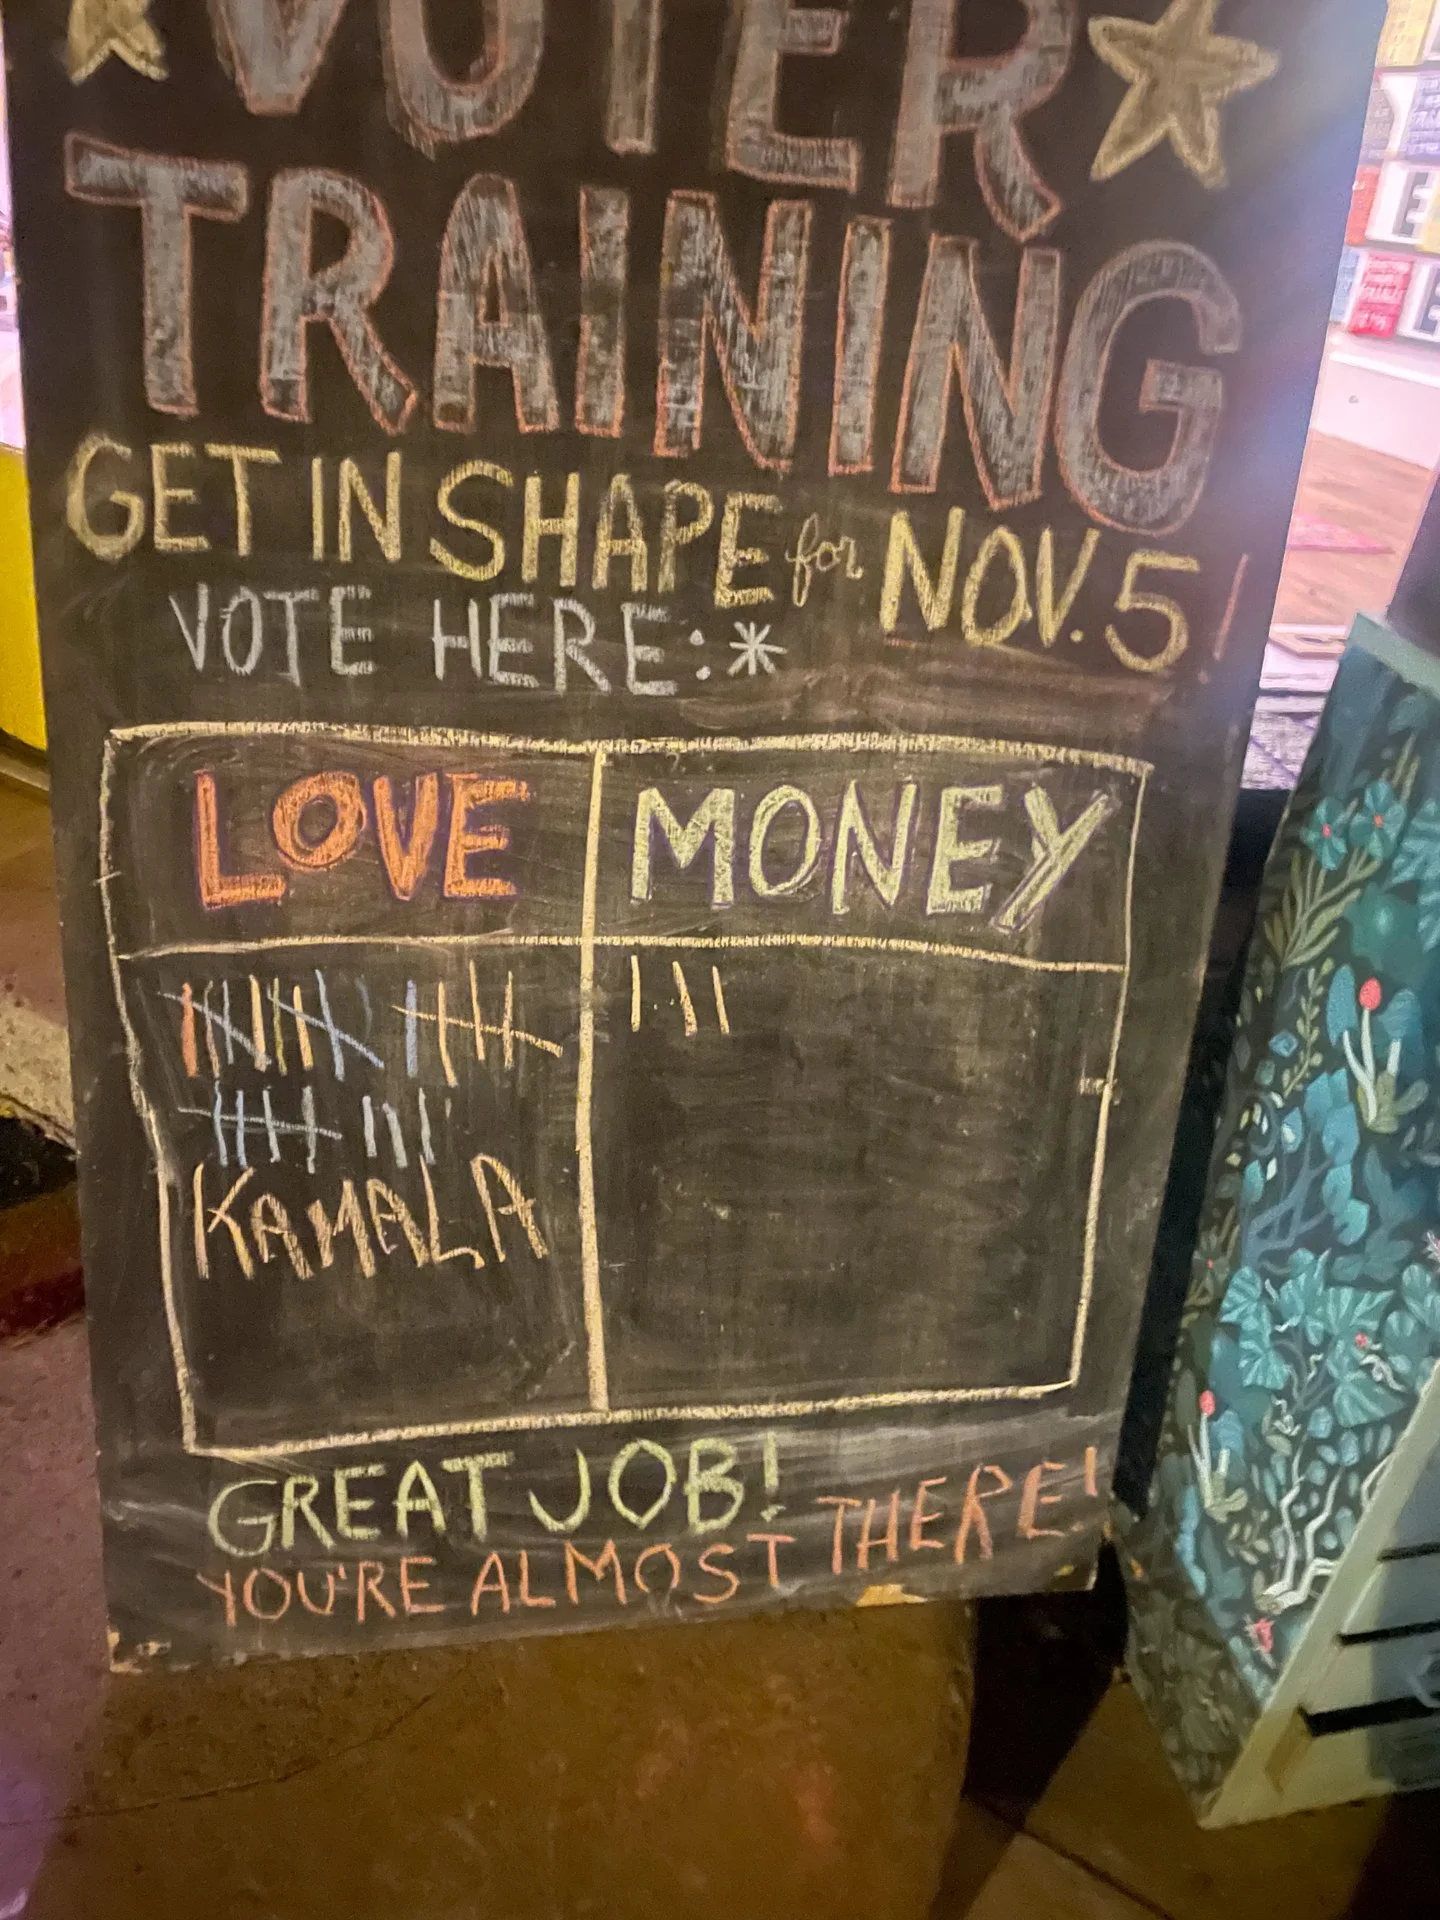 VOTER
TRAINING
GET IN SHAPE for NOV. 5!
VOTE HERE:*
LOVE
MONEY
KAMALA
GREAT JOB!
YOU'RE ALMOST THERE!